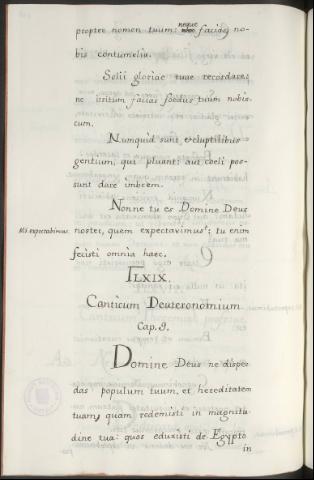 propter nomen tuum: neque facias no-
bis contumeliã.
Solii gloriae tuae recordare,
ne irritum facias foedus tuum nobis-
cum.
Numquid sunt sculptilibus
gentium, qui pluant: aut coeli pos-
sunt dare imbrem.
Nonne tu es Domine Deus
Mss expectabimus.
noster, quem expectavimus; tu enim
fecisti omnia haec.
LXIX.
Canticum Deuteronomium
Cap. 9.
Domine Deus ne disper
das populum tuum, et hereditatem
tuam, quam redemisti in magnitu
dine tua: quos eduxisti de Egypto
in